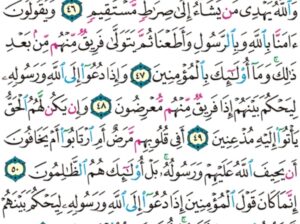 وَٱللَّهُ يَهْدِى مَن يَشَآءُ إِلَىٰ صِرَٰطٍ مُّسْتَقِيمٍ ٤٦ وَيَقُولُونَ
ءَامَنَّا بِٱللَّهِ وَبِٱلرَّسُولِ وَأَطَعْنَا ثُمَّ يَتَوَلَّىٰ فَرِيقٌ مِّنْهُم مِّنۢ بَعْدِ
ذَٰلِكَ وَمَآ أُو۟لَـٰٓئِكَ بِٱلْمُؤْمِنِينَ ٤٧ وَإِذَا دُعُوٓا۟ إِلَى ٱللَّهِ وَرَسُولِهِۦ
لِيَحْكُمَ بَيْنَهُمْ إِذَا فَرِيقٌ مِّنْهُم مُّعْرِضُونَ ٤٨ وَإِن يَكُن لَّهُمُ ٱلْحَقُّ
يَأْتُوٓا۟ إِلَيْهِ مُذْعِنِينَ ٤٩ أَفِى قُلُوبِهِم مَّرَضٌ أَمِ ٱرْتَابُوٓا۟ أَمْ يَخَافُونَ
أَن يَحِيفَ ٱللَّهُ عَلَيْهِمْ وَرَسُولُهُۥ ۚ بَلْ أُو۟لَـٰٓئِكَ هُمُ ٱلظَّـٰلِمُونَ ٥٠
إِنَّمَا كَانَ قَوْلَ ٱلْمُؤْمِنِينَ إِذَا دُعُوٓا۟ إِلَى ٱللَّهِ وَرَسُولِهِۦ لِيَحْكُمَ بَيْنَهُمْ